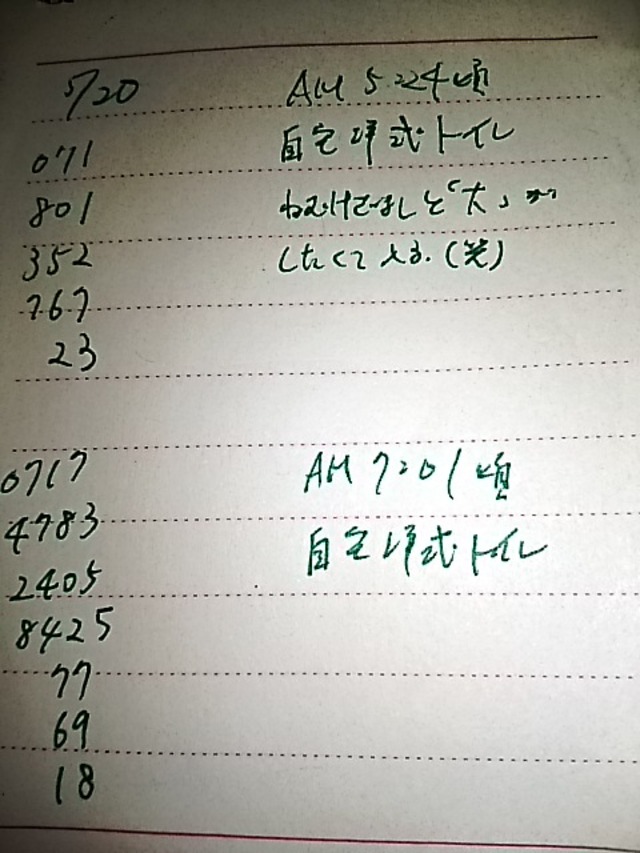 5/20 AM 5:24頃
071 自宅洋式トイレ
801 ねむけざましと「大」が
352 したくて入る.(笑)
767
23
0717 AM 7:01頃
4783 自宅洋式トイレ
2405
8425
77
69
18